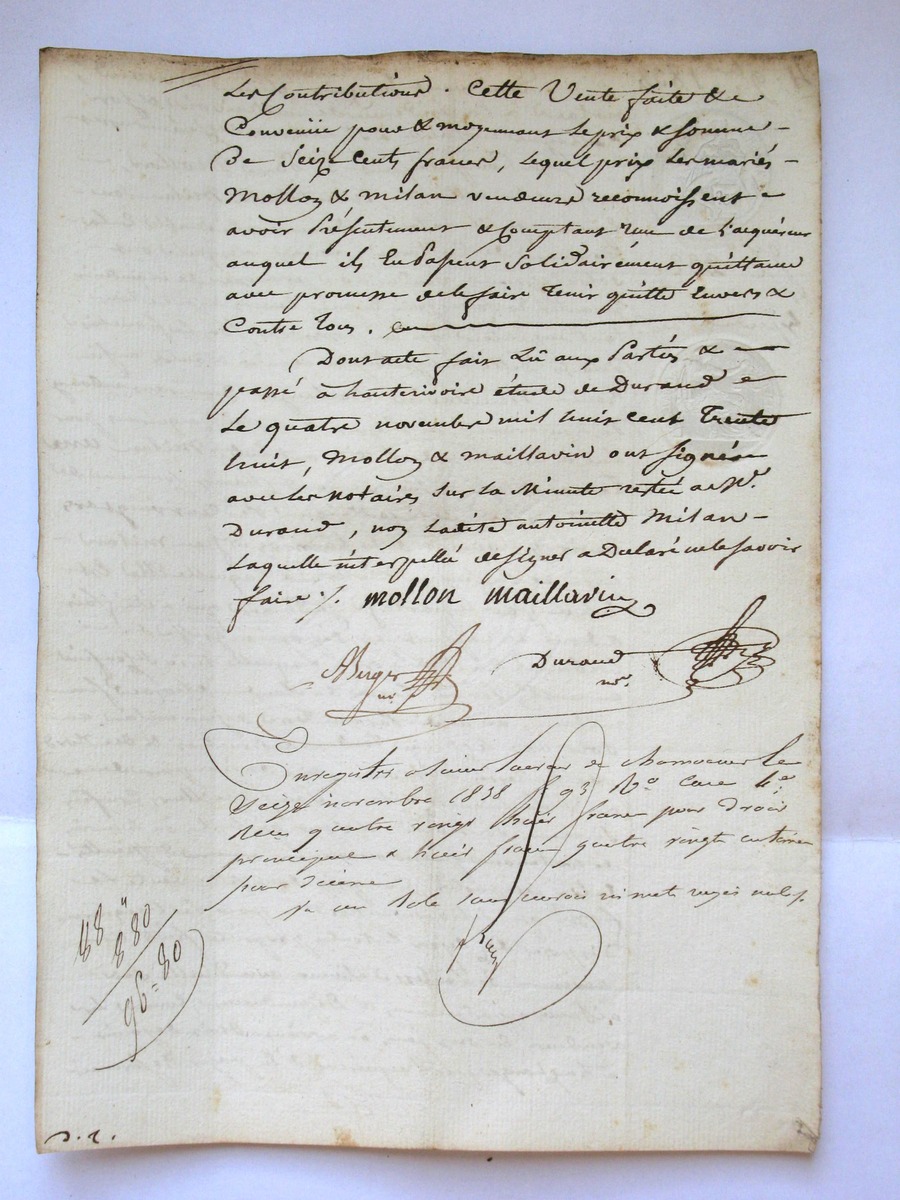 les Contributions. Cette Vente faite &
Convenüe pour & moyennant le prix & somme
De Seize cents francs, lequel prix les mariés
Mollon & milan vendeurs reconnoissent
avoir Présentement & Comptant reçu de l'acquéreur
auquel ils En Passent Solidairément quittance
avec promesse de le faire tenir quitte Envers &
Contre tous.
Dont acte fait Lû aux Partiés &
passé à hauterivoire étude de Durand
Le quatre novembre mil huit cent trente
huit, Mollon & maillavin ont signés
avec les notaires sur la Minute restée a Me.
Durand, non Ladite antoinette Milan
Laquelle interpellée de signer a Déclaré ne le savoir
faire ./. mollon maillavin
ABerger Durand
nre. nre.
Enregistré à Saint Laurent de chamousset le
Seize novembre 1838 fo 93 Ro case 4e
Reçu quatre vingt huit francs pour Droit
principal & huit francs quatre vingt centimes
pour décime
88 "
8 80
96 = 80